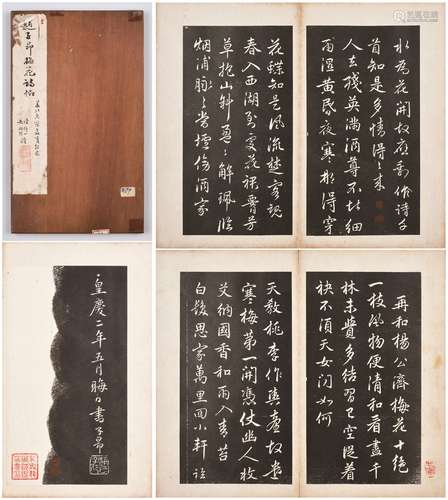 趙子昂梅花詩帖
水為花開故應剩作詩千
首知是多情得得來
人去殘英滿酒尊不堪細
雨濕黃昏夜寒那得穿
花蝶知是風流楚客魂
春入西湖到處花裙腰芳
草抱山斜盈盈解珮臨
烟浦脉脉當壚傍酒家
再和楊公濟梅花十絕
一枝風物便清和看盡千
林未覺多結習已空從着
袂不須天女問如何
天教桃李作輿臺故遣
寒梅第一開憑仗幽人收
艾納國香和雨入青苔
白髮思家萬里回小軒臨
皇慶二年五月晦日書子昂